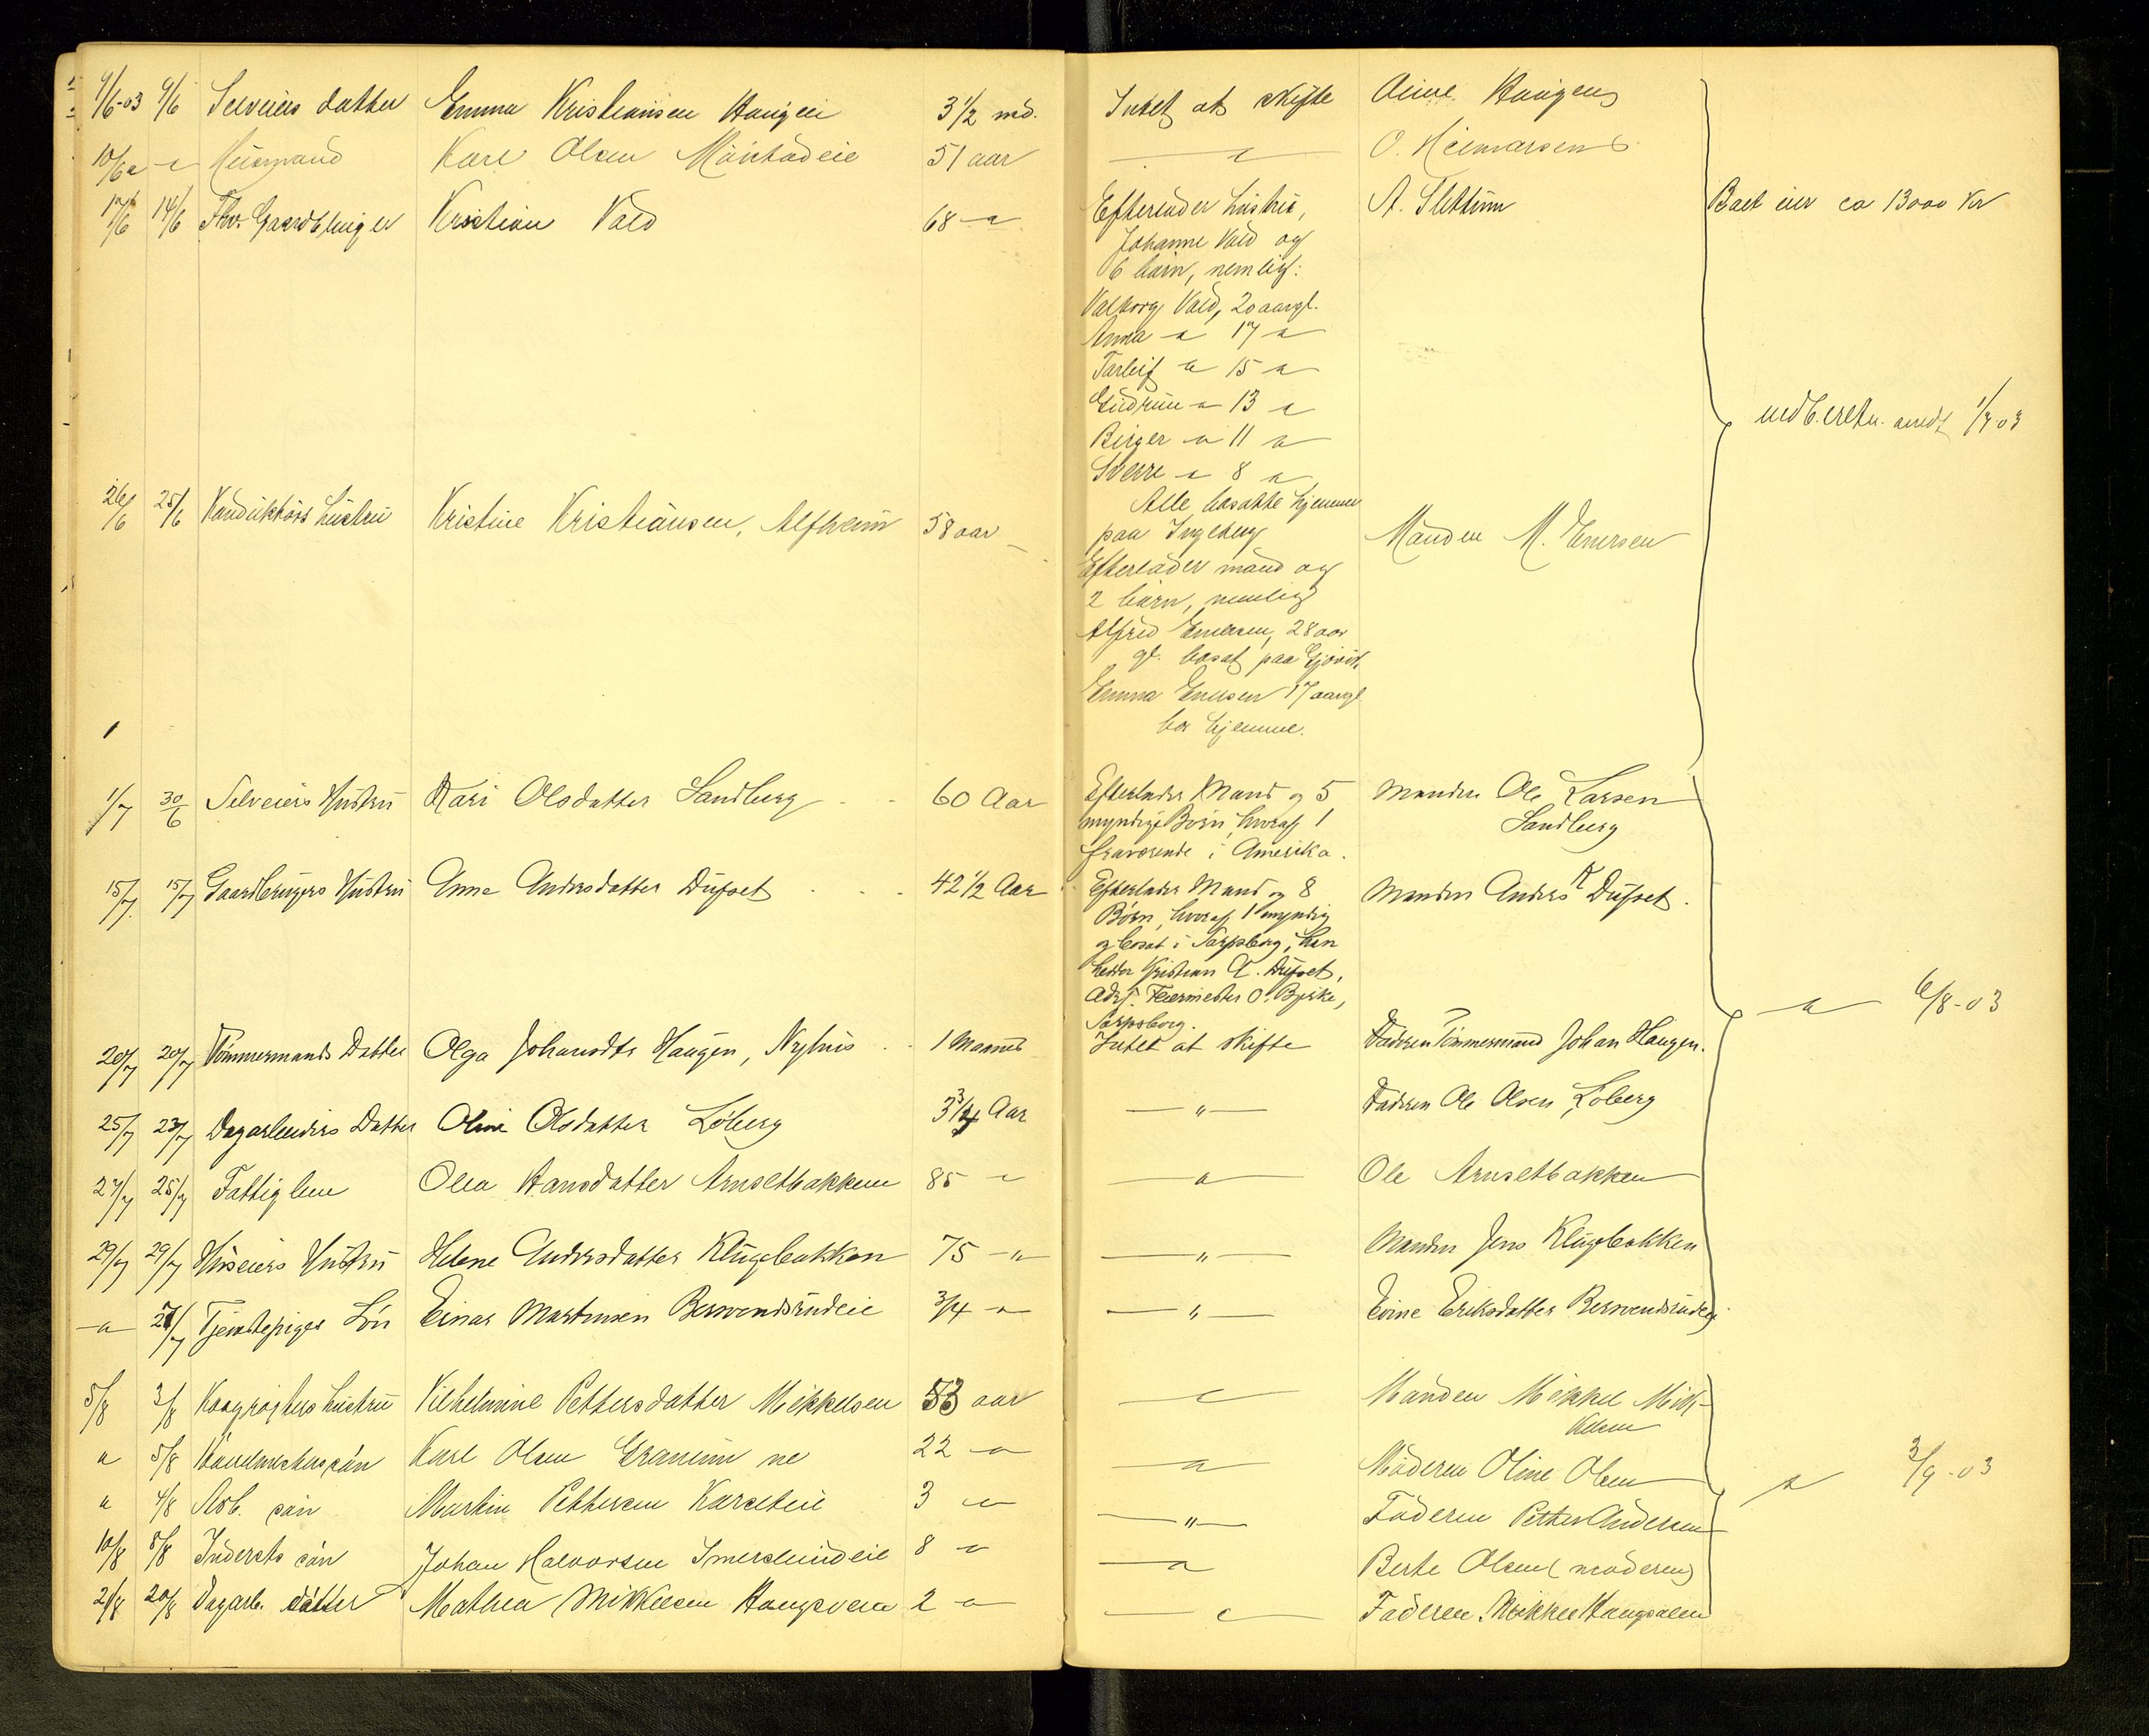 9/6-03 9/6 Selveiers datter Emma Kristiansen Haugen 3 1/2 md. Intet at skifte Haugen
10/6 Husmand Karl Olsen 51 aar O. Heimarsen
17/6 14/6 Fhv. Gaardbruger Kristian Vald 68 Efterlader hustru, A. Slettum Boet eier ca 13000 Kr
Johanne Vald og
6 børn, nemlig:
Valborg Vald, 20 aargl.
Anna 17
Tarleif 15
Gudrun 13 indberetn. sendt 1/7 03
Birger 11
Sverre 8
Alle bosatte hjemme
26/6 25/6 Konduktørs hustru Kristine Kristiansen, Alfheim 58 aar paa Ingeberg Manden M. Enersen
Efterlader mand og
2 børn, nemlig
Alfred Enersen, 28 aar
gl. bosat paa Gjøvik,
Emma Enersen 17 aargl
bor hjemme.
1/7 30/6 Selveiers Hustru Kari Olsdatter Sandberg 60 Aar Efterlader Mand og 5 Manden Ole Larsen
myndige Børn, hvoraf 1 Sandberg
fraværende i Amerika.
15/7 15/7 Gaardbrugers Hustru Anne Andersdatter Dufset 42 1/2 Aar Efterlader Mand og 8 Manden Anders K Dufset.
Børn, hvoraf 1 myndig
og bosat i Sarpsborg, han
hedder Kristian A. Dufset,
adr. Feiermester O. Bjerke, 6/8-03
Sarpsborg.
20/7 20/7 Tømmermands Datter Olga Johansdtr Haugen, Nyhus 1 Maaned Intet at skifte Faderen Tømmermand Johan Haugen.
25/7 23/7 Dagarbeiders Datter Oline Olsdatter Løberg 3 3/4 Aar — " — Faderen Ole Olsen Løberg
27/7 25/7 Fattiglem Olea Hansdatter Arnsetbakken 85 Ole Arnsetbakken
29/7 29/7 Huseiers Hustru Helene Andersdatter Klugebakken 75 — " — " — Manden Jens Klugebakken
27/7 Tjenestepiges Søn Einar Martinsen Berwendsrudeie 3/4 — " — Evine Eriksdatter Berwendsrudeie
5/8 3/8 hustru Vilhelmine Pettersdatter Mikkelsen 53 aar Manden Mikkel Mik-
kelsen
5/8 søn Karl Olsen 22 Moderen Oline Olsen 3/9-03
4/8 Arb. søn Martin Pettersen 3 — " — Faderen Petter Andersen
10/8 8/8 Inderst søn Johan Halvorsen 8 Berte Olsen (moderen)
21/8 20/8 Dagarb. datter Mathea Mikkelsen 2 Faderen Mikkel